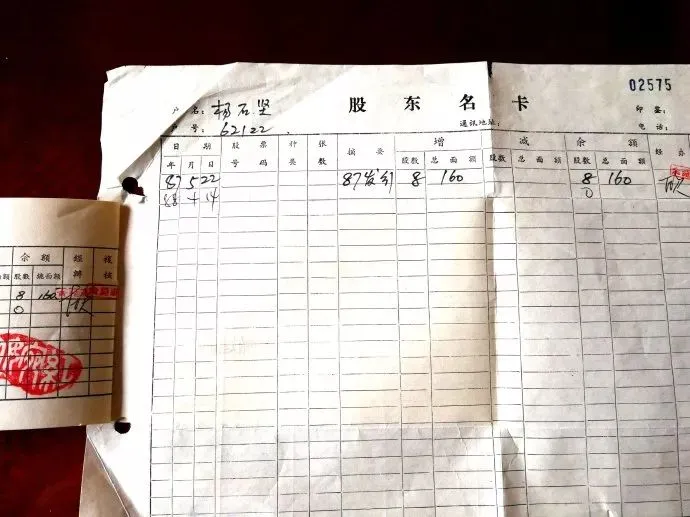 02575
股东名卡
户名：杨石坚 印鉴：
户号：62122 通讯地址： 电话：
日期 股票 种 张 摘要 增 减 余额 经办
年 月 日 号码 类 数 股数 总面额 股数 总面额 股数 总面额
87 5 22 87发行 8 160 8 160
88 十 14 0
余额 经 核
额 股数 总面额 办 核
8 160
0